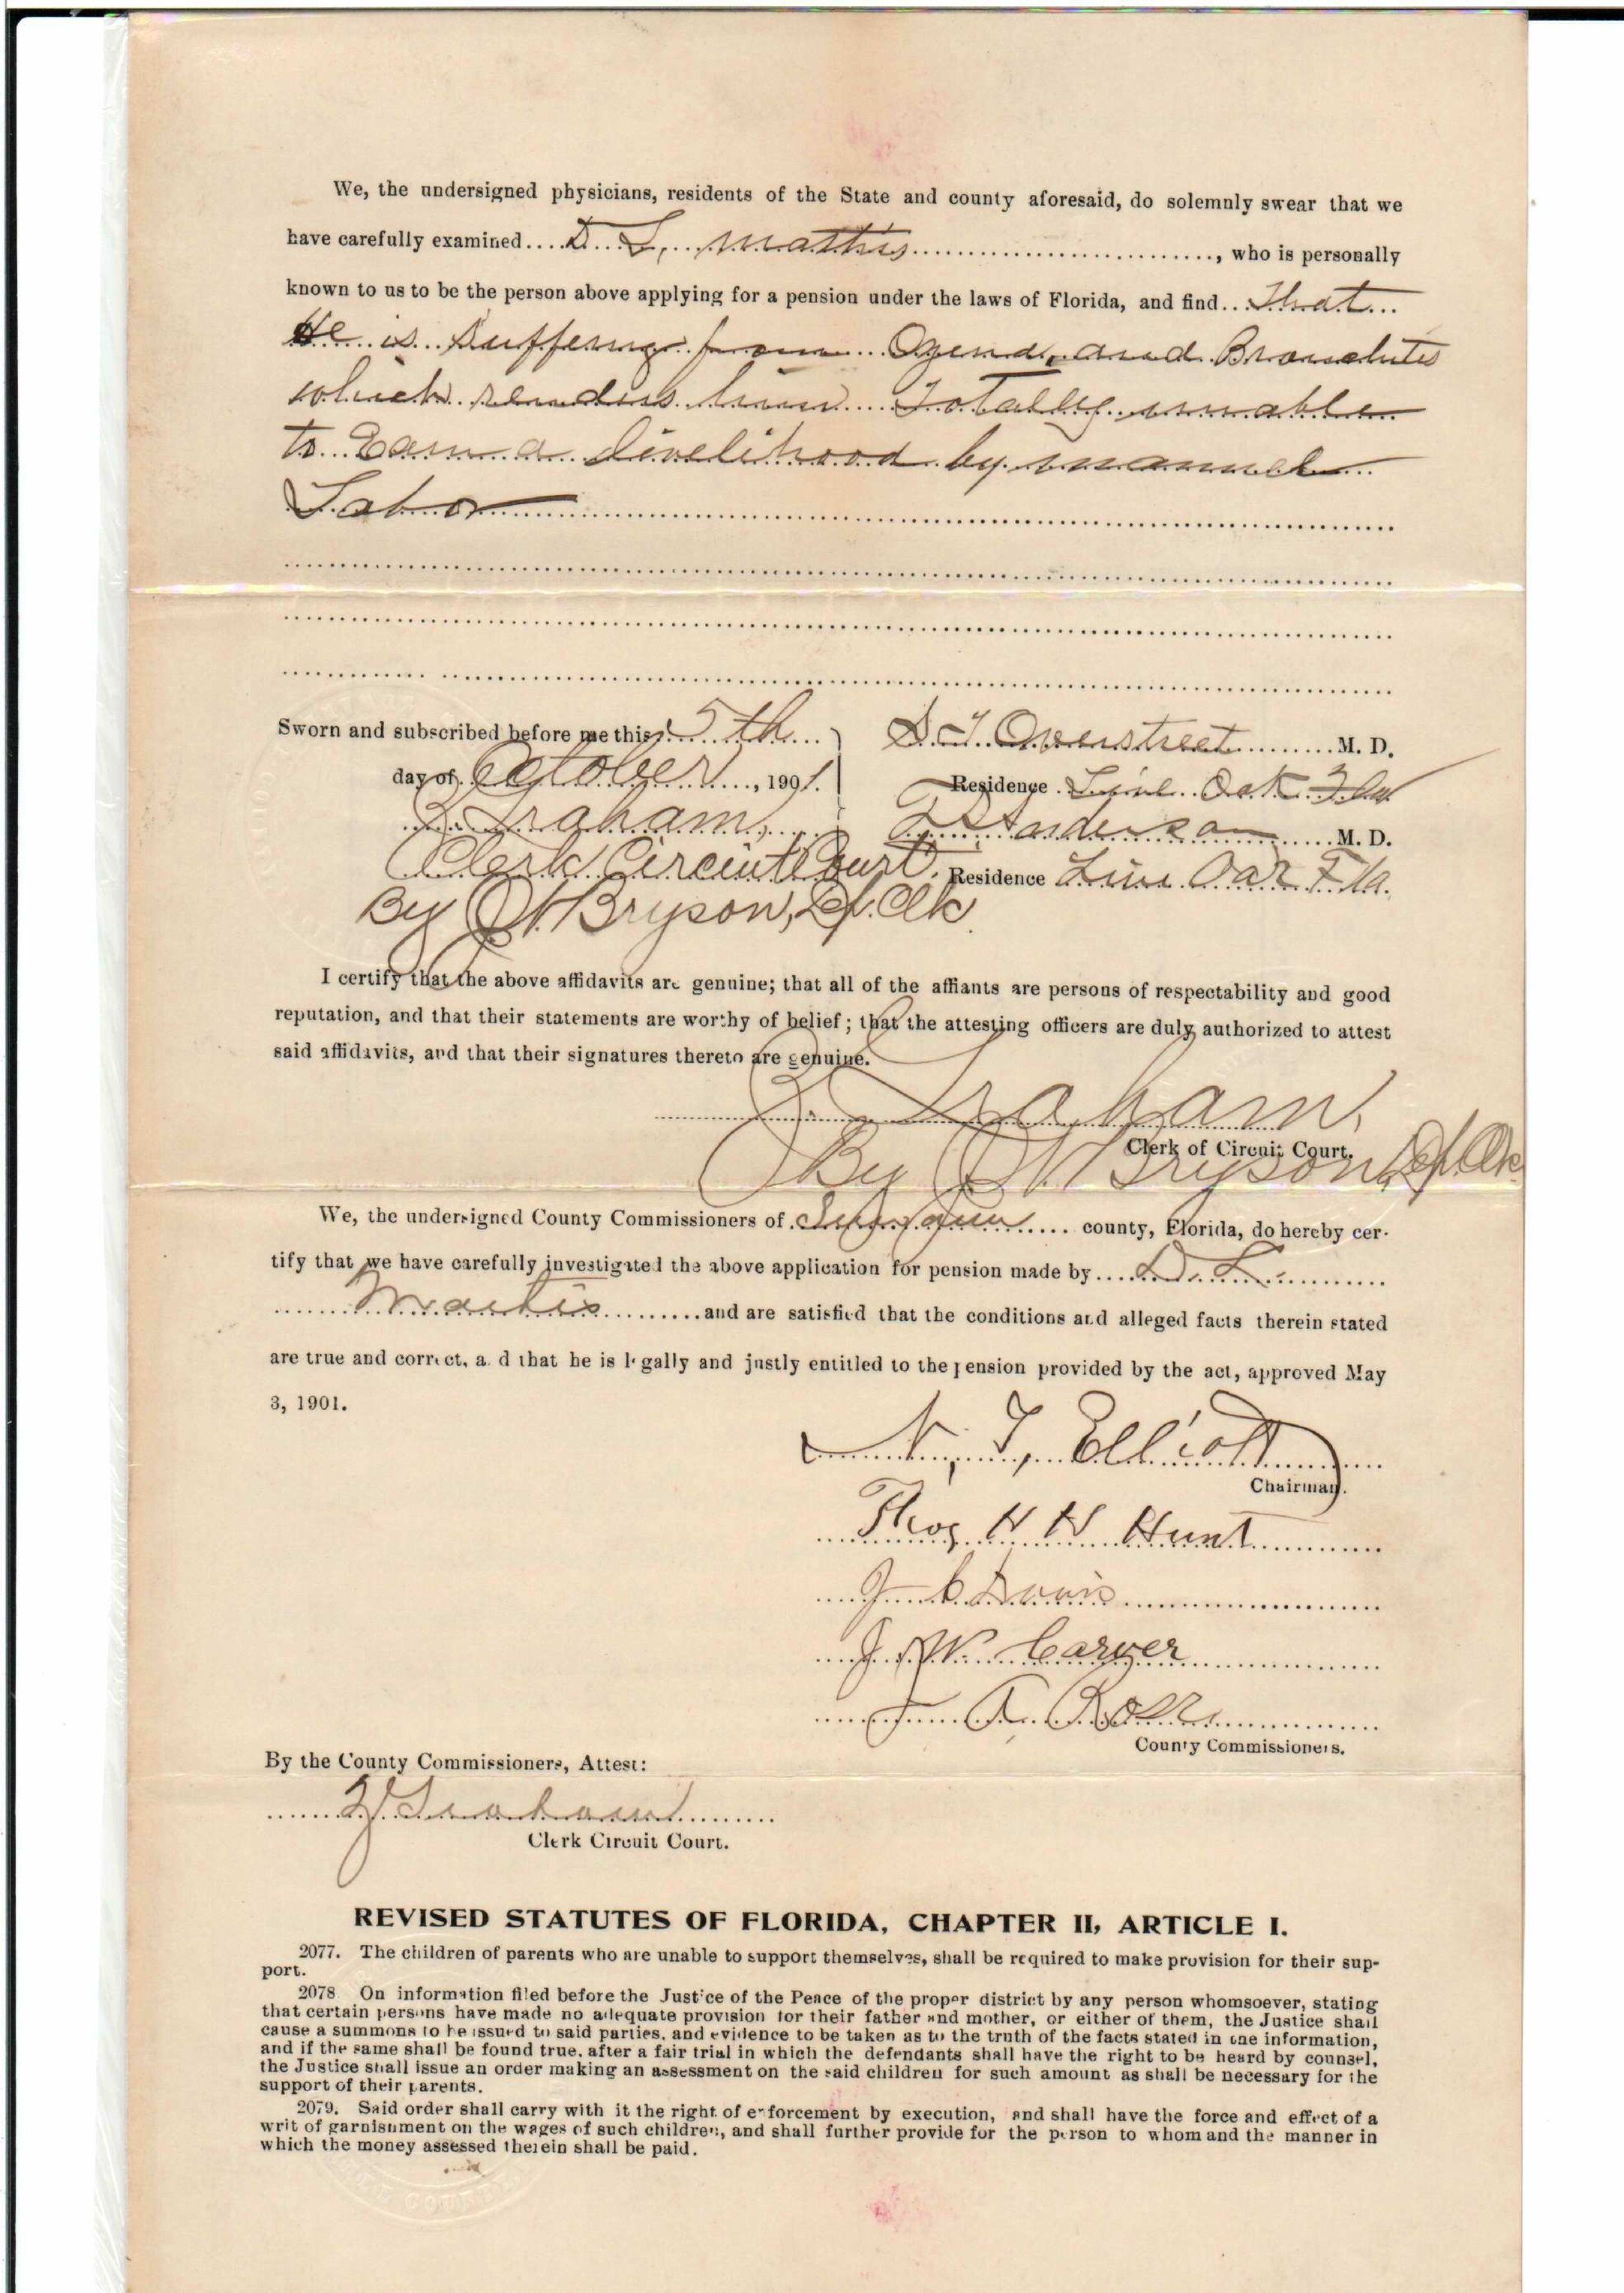 We, the undersigned physicians, residents of the State and county aforesaid, do solemnly swear that we
have carefully examined....D. L. Mathis...., who is personally
known to us to be the person above applying for a pension under the laws of Florida, and find..That...
He is Suffering from Ozena, and Bronchites
which renders him Totally unable
to Earn a livelihood by manuel
Labor
Sworn and subscribed before me this 5th
day of October, 1901.
Graham,
Clerk Circuit Court.
By Bryson, Dp. Clk
Overstreet M. D.
Residence Live Oak Fla
Anderson M. D.
Residence Live Oak Fla.
I certify that the above affidavits are genuine; that all of the affiants are persons of respectability and good
reputation, and that their statements are worthy of belief; that the attesting officers are duly authorized to attest
said affidavits, and that their signatures thereto are genuine.
Graham,
Clerk of Circuit Court.
By Bryson, Dp Clk
We, the undersigned County Commissioners of Suwannee county, Florida, do hereby cer-
tify that we have carefully investigated the above application for pension made by D. L.
Mathis and are satisfied that the conditions and alleged facts therein stated
are true and correct, and that he is legally and justly entitled to the pension provided by the act, approved May
3, 1901.
N. T. Elliott
Chairman.
Thos H H Hunt
J C Davis
J. W. Carver
J. A. Ross
County Commissioners.
By the County Commissioners, Attest:
Graham
Clerk Circuit Court.
REVISED STATUTES OF FLORIDA, CHAPTER II, ARTICLE I.
2077. The children of parents who are unable to support themselves, shall be required to make provision for their sup-
port.
2078 On information filed before the Justice of the Peace of the proper district by any person whomsoever, stating
that certain persons have made no adequate provision for their father and mother, or either of them, the Justice shall
cause a summons to be issued to said parties, and evidence to be taken as to the truth of the facts stated in the information,
and if the same shall be found true, after a fair trial in which the defendants shall have the right to be heard by counsel,
the Justice shall issue an order making an assessment on the said children for such amount as shall be necessary for the
support of their parents.
2079. Said order shall carry with it the right of enforcement by execution, and shall have the force and effect of a
writ of garnishment on the wages of such children, and shall further provide for the person to whom and the manner in
which the money assessed therein shall be paid.